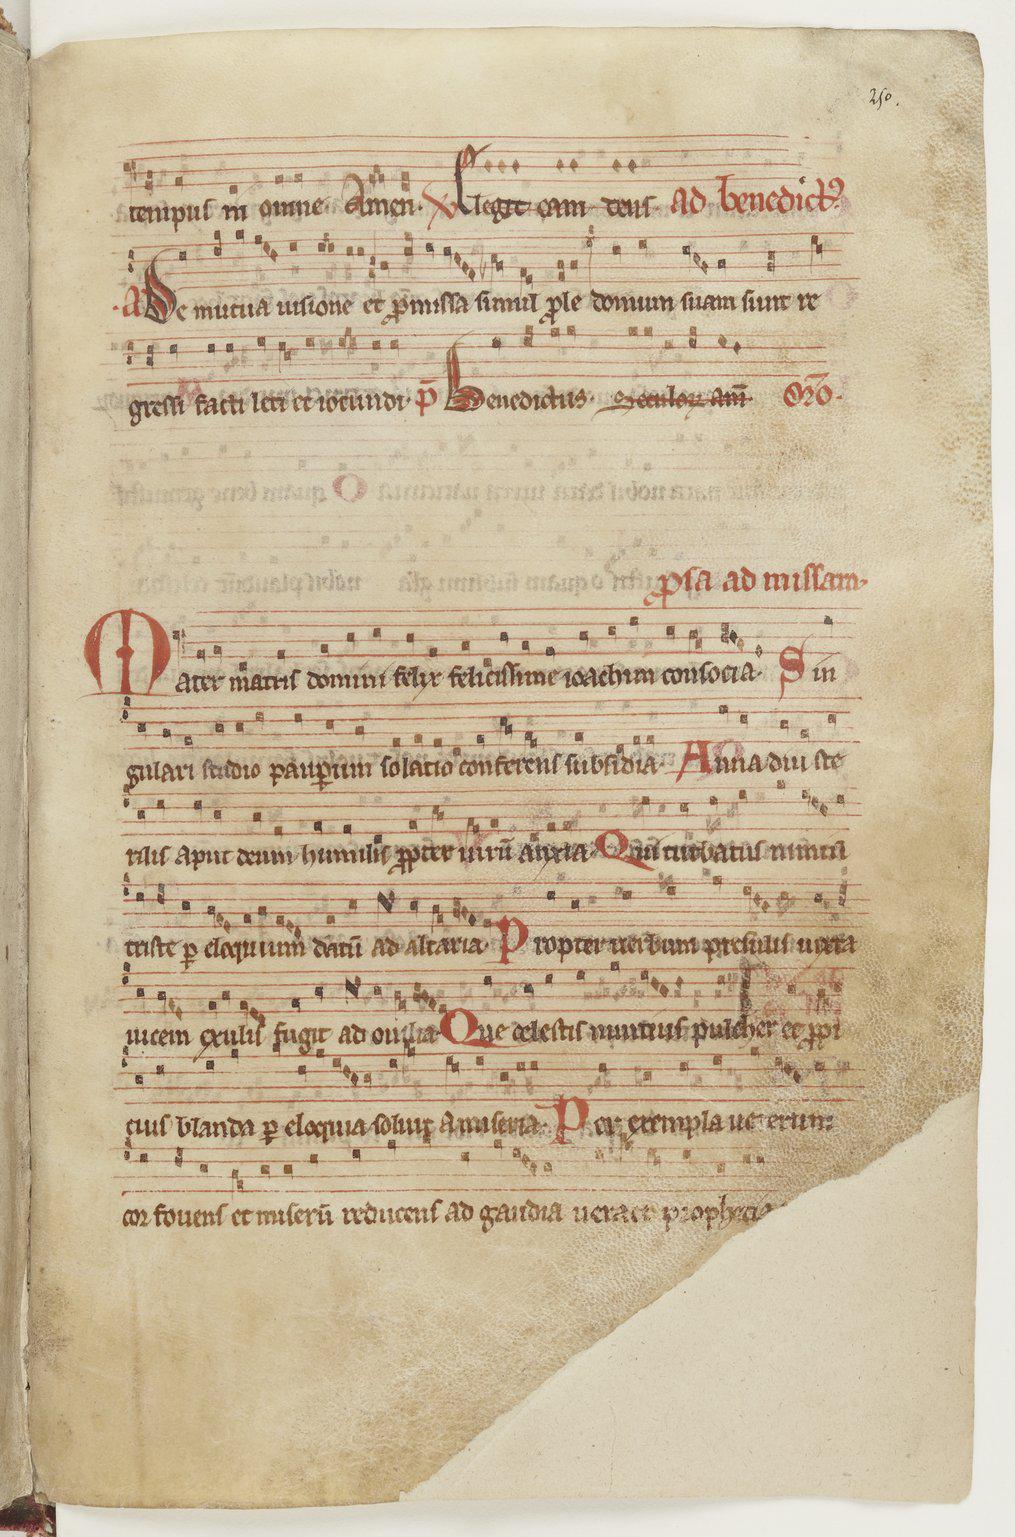 250.
tempus in omne Amen. V Elegit eam deus ad benedictꝰ
a De mutua uisione et ꝓmissa simul ꝓle domum suam sunt re
gressi facti leti et iocundi p̄ Benedictus. Seculoꝝ am̄. Oro.
ꝓsa ad missam.
Mater matris domini felix felicissime ioachim consocia. Sin
gulari studio pauꝑum solatio conferens subsidia. Anna diu ste
rilis aput deum humilis ꝓpter uirū anxia. Qui turbatus
triste ꝑ eloquium datū ad altaria. Propter uerbum presulis iuxta
uicem exulis fugit ad ouilia. Que celestis nuntius pulcher et
cius blanda ꝑ eloquia soluit a miseria. Per exempla ueterum
cor fouens et miserū reducens ad gaudia ueraci